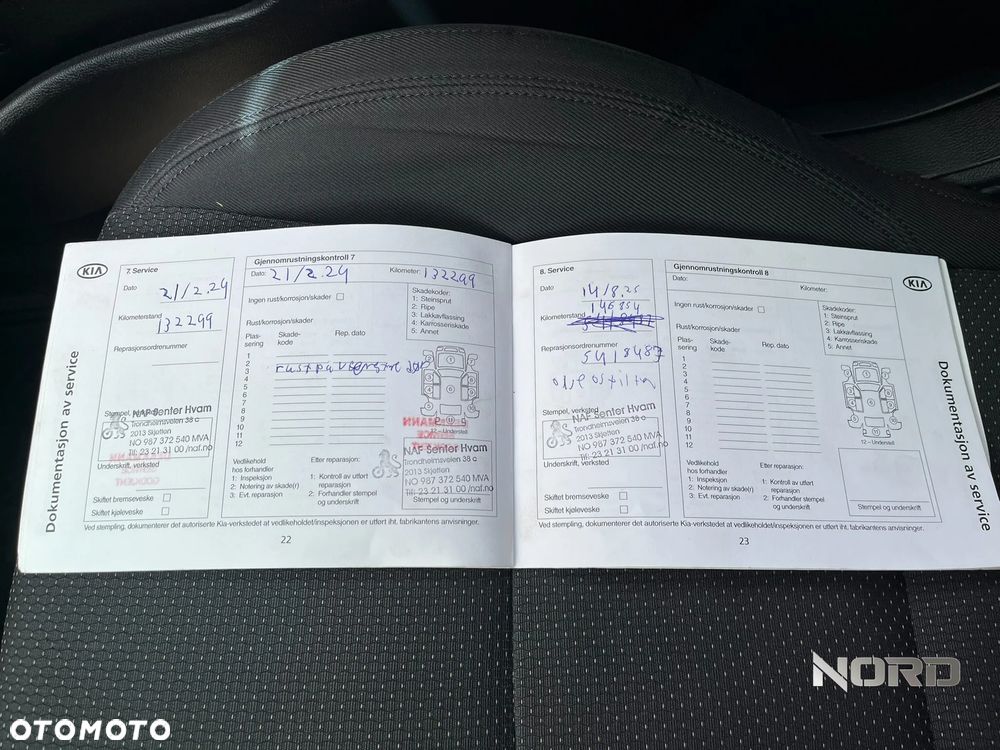 KIA
7. Service
Dato
21/2.24
Kilometerstand
132299
Reprasjonsordrenummer
Stempel, verksted
NAF Senter Hvam
Trondheimsveien 38 c
2013 Skjetten
NO 987 372 540 MVA
Tlf: 23 21 31 00 /naf.no
Underskrift, verksted
Skiftet bremseveske
Skiftet kjøleveske
Gjennomrustningskontroll 7
Dato: 21/2.24 Kilometer: 132299
Ingen rust/korrosjon/skader
Rust/korrosjon/skader
Plas-sering Skade-kode Rep. dato
1
2
3
4
5
6
7
8
9
10
11
12
Skadekoder:
1: Steinsprut
2: Ripe
3: Lakkavflassing
4: Karrosseriskade
5: Annet
12 – Understell
NAF Senter Hvam
Trondheimsveien 38 c
2013 Skjetten
NO 987 372 540 MVA
Tlf: 23 21 31 00 /naf.no
Stempel og underskrift
Vedlikehold
hos forhandler
1: Inspeksjon
2: Notering av skade(r)
3: Evt. reparasjon
Etter reparasjon:
1: Kontroll av utført
reparasjon
2: Forhandler stempel
og underskrift
Ved stempling, dokumenterer det autoriserte Kia-verkstedet at vedlikeholdet/inspeksjonen er utført iht. fabrikantens anvisninger.
22
Dokumentasjon av service
8. Service
Dato
14/8.25
146854
Kilometerstand
Reprasjonsordrenummer
5418487
Stempel, verksted
NAF Senter Hvam
Trondheimsveien 38 c
2013 Skjetten
NO 987 372 540 MVA
Tlf: 23 21 31 00 /naf.no
Underskrift, verksted
Skiftet bremseveske
Skiftet kjøleveske
Gjennomrustningskontroll 8
Dato: Kilometer:
Ingen rust/korrosjon/skader
Rust/korrosjon/skader
Plas-sering Skade-kode Rep. dato
1
2
3
4
5
6
7
8
9
10
11
12
Skadekoder:
1: Steinsprut
2: Ripe
3: Lakkavflassing
4: Karrosseriskade
5: Annet
12 – Understell
Vedlikehold
hos forhandler
1: Inspeksjon
2: Notering av skade(r)
3: Evt. reparasjon
Etter reparasjon:
1: Kontroll av utført
reparasjon
2: Forhandler stempel
og underskrift
Stempel og underskrift
Ved stempling, dokumenterer det autoriserte Kia-verkstedet at vedlikeholdet/inspeksjonen er utført iht. fabrikantens anvisninger.
23
KIA
Dokumentasjon av service
NORD
OTOMOTO